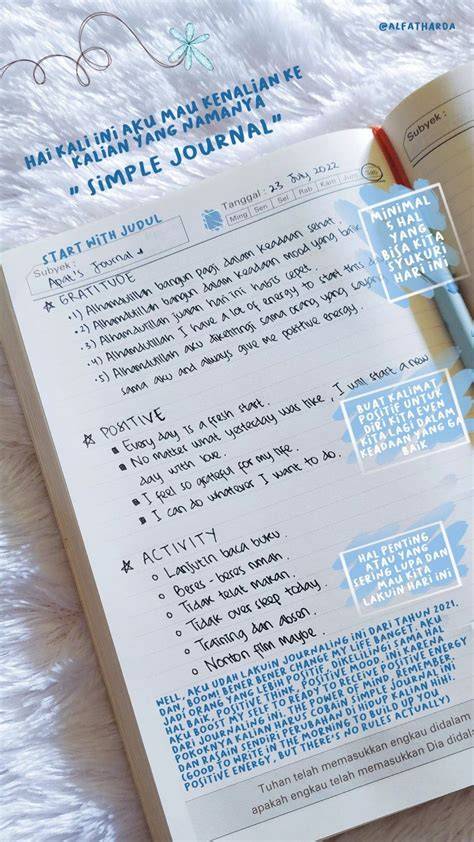 @ALFATHARDA
HAI KALI INI AKU MAU KENALIAN KE
KALIAN YANG NAMANYA
" SIMPLE JOURNAL"
START WITH JUDUL
Subyek :
Journal
Tanggal : 23 July 2022
Ming Sen Sel Rab Kam Jum Sab
Subyek :
GRATITUDE
1) Alhamdulillah bangun pagi dalam keadaan sehat.
2) Alhamdulillah bangun dalam keadaan mood yang baik
3) Alhamdulillah jualan hari ini habis cepet.
4) Alhamdulillah I have a lot of energy to start this day
5) Alhamdulillah aku dikelilingi sama orang yang sayang
sama aku and always give me positive energy.
MINIMAL
5 HAL
YANG
BISA KITA
SYUKURI
HARI INI
POSITIVE
Every day is a fresh start.
No matter what yesterday was like, I will start a new
day with love.
I feel so grateful for my life.
I can do whatever I want to do.
BUAT KALIMAT
POSITIF UNTUK
DIRI KITA EVEN
KITA LAGI DALAM
KEADAAN YANG GA
BAIK
ACTIVITY
Lanjutin baca buku.
Beres - beres rumah.
Tidak telat makan.
Tidak over sleep today.
Training dan absen.
Nonton film maybe.
HAL PENTING
ATAU YANG
SERING LUPA DAN
MAU KITA
LAKUIN HARI INI
WELL, AKU UDAH LAKUIN JOURNALING INI DARI TAHUN 2021,
DAN, BOOM! BENER BENER CHANGE MY LIFE BANGET, AKU
JADI ORANG YANG LEBIH POSITIVE, DIKELILINGI SAMA HAL
BAIK, POSITIVE THINK, POSITIVE MOOD, INI KAREN
AKU BOOST MY SELF TO READY RECEIVE POSITIVE ENERGY
DARI JOURNALING INI, THE POWER OF MIND, REMEMBER.
POKOKNYA KALIAN HARUS COBAIN SIMPLE JOURNAL INI
DAN RAJAIN SENDIRI PERUBAHAN DIHIDUP KALIAN HIHI
(GOOD TO WRITE IN THE MORNING TO BUILD UP YOU
POSITIVE ENERGY, BUT THERE'S NO RULES ACTUALLY)
Tuhan telah memasukkan engkau dalam
apakah engkau telah memasukkan Dia dalam